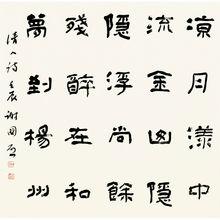 涼月漾中
流金山隱
隱浮尚餘
殘醉在和
夢到楊州
清人詩壬辰謝國